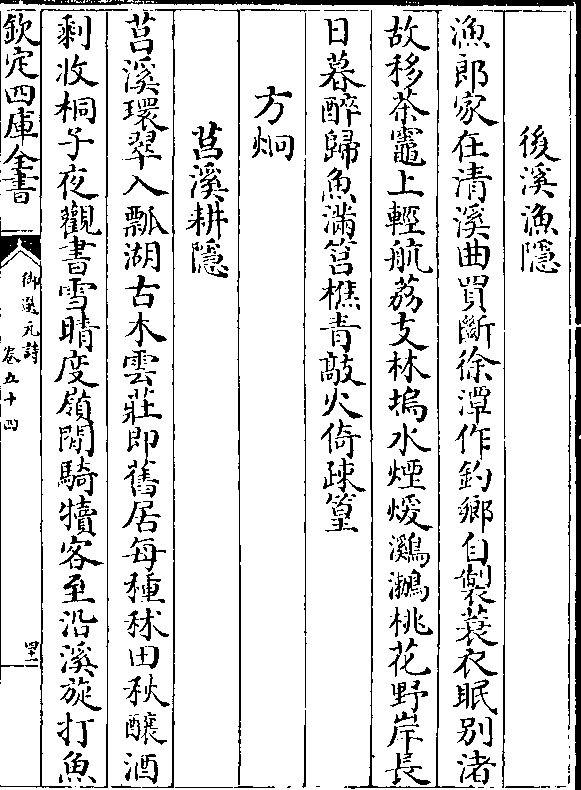 後溪漁隱
漁郎家在清溪曲買斷徐潭作釣鄉自製蓑衣眠别渚
故移茶竈上輕航荔支林塢水煙煖鸂鶒桃花野岸長
日暮醉歸魚滿笤樵青敲火倚疎篁
方炯
莒溪耕隱
莒溪環翠入瓢湖古木雲莊即舊居每種秫田秋釀酒
剰收桐子夜觀書雪晴度嶺閒騎犢客至沿溪旋打魚
欽定四庫全書
御選元詩
卷五十四
四十二